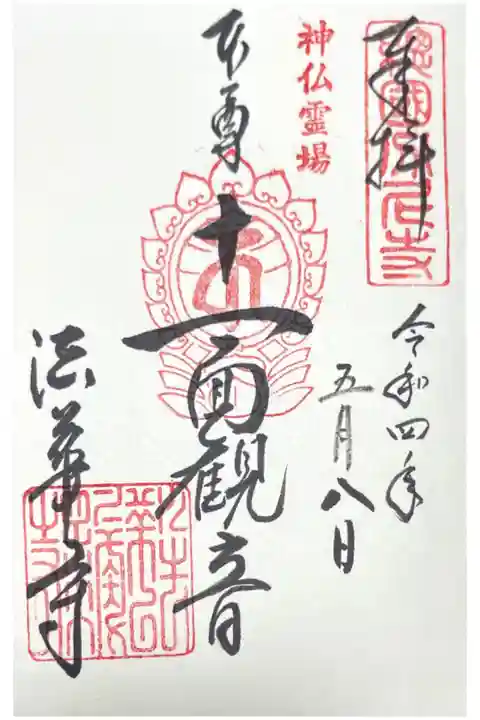 奉拝
令和四年
五月八日
神仏霊場
本尊
十一面観音
法華寺